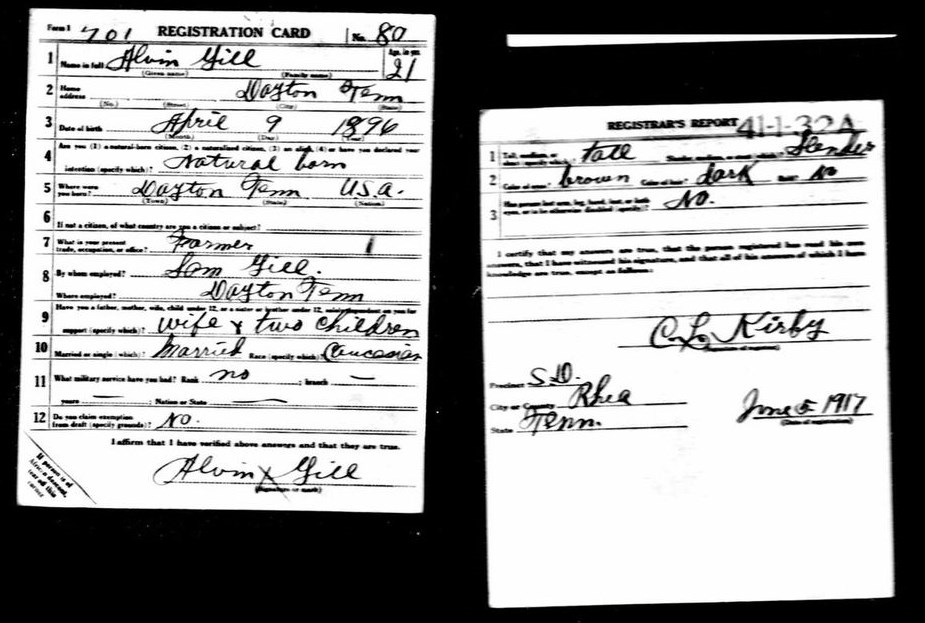 Form 1 701 REGISTRATION CARD No. 80
1 Name in full Alvin Gill Age, in yrs 21
(Given name) (Family name)
2 Home address Dayton Tenn
(No.) (Street) (City) (State)
3 Date of birth April 9 1896
(Month) (Day) (Year)
4 Are you (1) a natural-born citizen, (2) a naturalized citizen, (3) an alien, (4) or have you declared your
intention (specify which)? Natural born
5 Where were you born? Dayton Tenn U.S.A.
(Town) (State) (Nation)
6 If not a citizen, of what country are you a citizen or subject?
7 What is your present trade, occupation, or office? Farmer 1
8 By whom employed? Sam Gill.
Where employed? Dayton Tenn
9 Have you a father, mother, wife, child under 12, or a sister or brother under 12, solely dependent on you for
support (specify which)? Wife & two children
10 Married or single (which)? Married Race (specify which)? Caucasian
11 What military service have you had? Rank no ; branch —
years — ; Nation or State —
12 Do you claim exemption from draft (specify grounds)? No.
I affirm that I have verified above answers and that they are true.
Alvin X Gill
(Signature or mark)
If person is of
African descent,
tear off this
corner
REGISTRAR'S REPORT 41-1-32A
1 Tall, medium, or short (specify which)? tall Slender, medium, or stout (which)? Slender
2 Color of eyes? brown Color of hair? dark Bald? No
3 Has person lost arm, leg, hand, foot, or both
eyes, or is he otherwise disabled (specify)? No.
I certify that my answers are true, that the person registered has read his own
answers, that I have witnessed his signature, and that all of his answers of which I have
knowledge are true, except as follows:
C. L. Kirby
(Signature of registrar)
Precinct S.D.
City or County Rhea
State Tenn.
June 5 1917
(Date of registration)